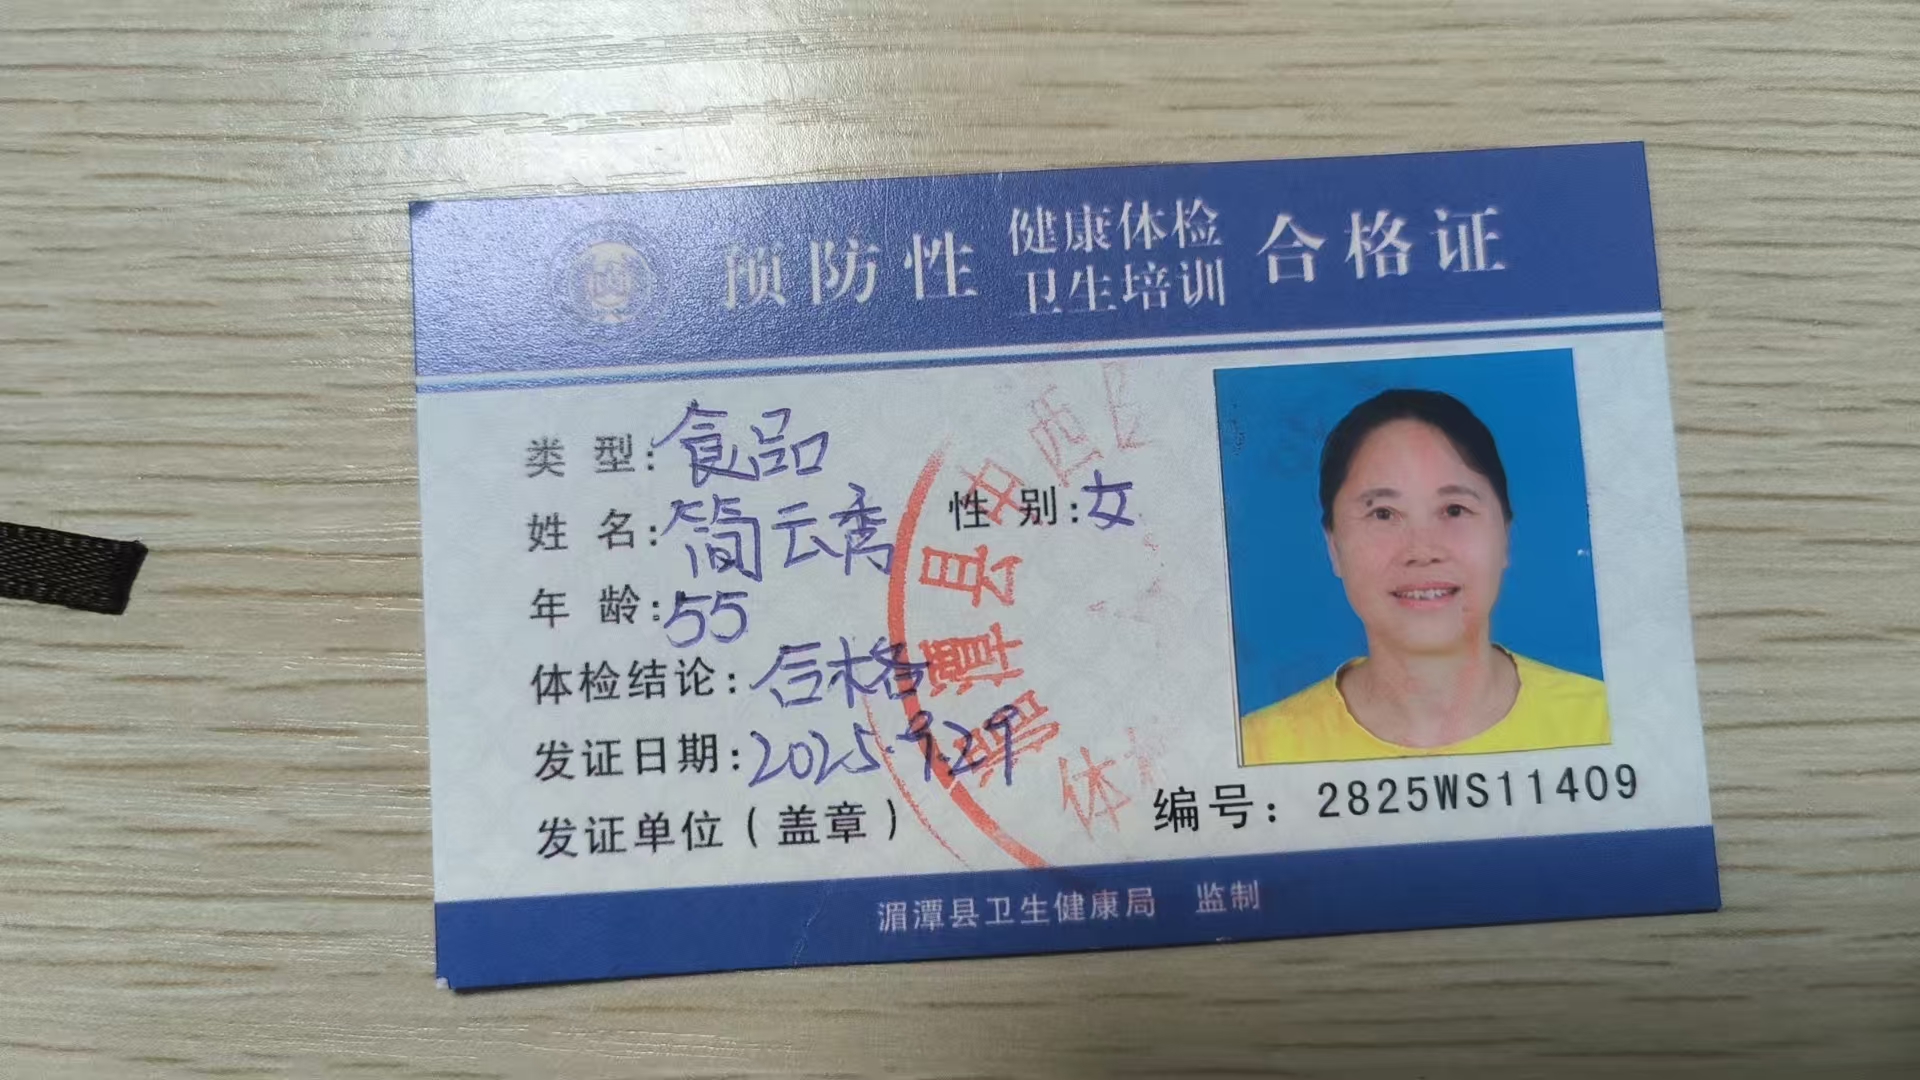 预防性 健康体检 卫生培训 合格证
类 型:食品
姓 名:简云秀 性 别:女
年 龄:55
体检结论:合格
发证日期:2025.9.29
发证单位(盖章)
编号: 2825WS11409
湄潭县卫生健康局 监制
湄潭县中西
体检